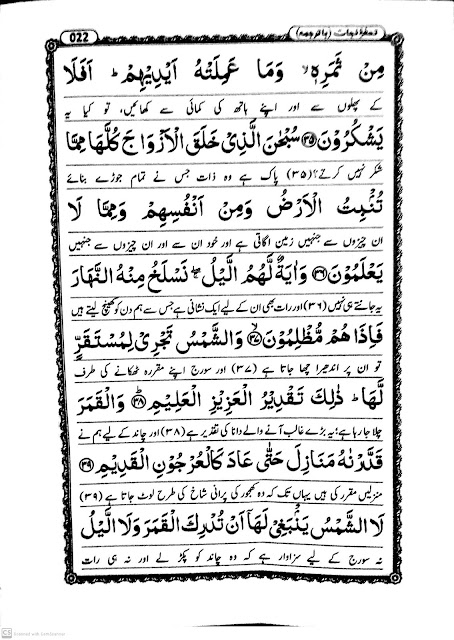 022 سفر نجات (با ترجمہ)
مِنْ ثَمَرِهٖ ۙ وَمَا عَمِلَتْهُ اَيْدِيْهِمْ ؕ اَفَلَا
کے پھلوں سے اور اپنے ہاتھ کی کمائی سے کھائیں، تو کیا یہ
يَشْكُرُوْنَ ﴿۳۵﴾ سُبْحٰنَ الَّذِىْ خَلَقَ الْاَزْوَاجَ كُلَّهَا مِمَّا
شکر نہیں کرتے؟ (۳۵) پاک ہے وہ ذات جس نے تمام جوڑے بنائے
تُنْۢبِتُ الْاَرْضُ وَمِنْ اَنْفُسِهِمْ وَمِمَّا لَا
ان چیزوں سے جنہیں زمین اگاتی ہے اور خود ان سے اور ان چیزوں سے جنہیں
يَعْلَمُوْنَ ﴿۳۶﴾ وَاٰيَةٌ لَّهُمُ الَّيْلُ ۖۚ نَسْلَخُ مِنْهُ النَّهَارَ
یہ جانتے ہی نہیں (۳۶) اور رات بھی ان کے لیے ایک نشانی ہے جس سے ہم دن کو کھینچ لیتے ہیں
فَاِذَا هُمْ مُّظْلِمُوْنَ ﴿۳۷﴾ ۙ وَالشَّمْسُ تَجْرِىْ لِمُسْتَقَرٍّ
تو ان پر اندھیرا چھا جاتا ہے (۳۷) اور سورج اپنے مقررہ ٹھکانے کی طرف
لَّهَا ؕ ذٰلِكَ تَقْدِيْرُ الْعَزِيْزِ الْعَلِيْمِ ﴿۳۸﴾ ؕ وَالْقَمَرَ
چلا جا رہا ہے؛ یہ بڑے غالب آنے والے دانا کی تقدیر ہے (۳۸) اور چاند کے لیے ہم نے
قَدَّرْنٰهُ مَنَازِلَ حَتّٰى عَادَ كَالْعُرْجُوْنِ الْقَدِيْمِ ﴿۳۹﴾
منزلیں مقرر کی ہیں یہاں تک کہ وہ کھجور کی پرانی شاخ کی طرح لوٹ جاتا ہے (۳۹)
لَا الشَّمْسُ يَنْۢبَغِىْ لَهَاۤ اَنْ تُدْرِكَ الْقَمَرَ وَلَا الَّيْلُ
نہ سورج کے لیے سزاوار ہے کہ وہ چاند کو پکڑ لے اور نہ ہی رات
CS Scanned with CamScanner